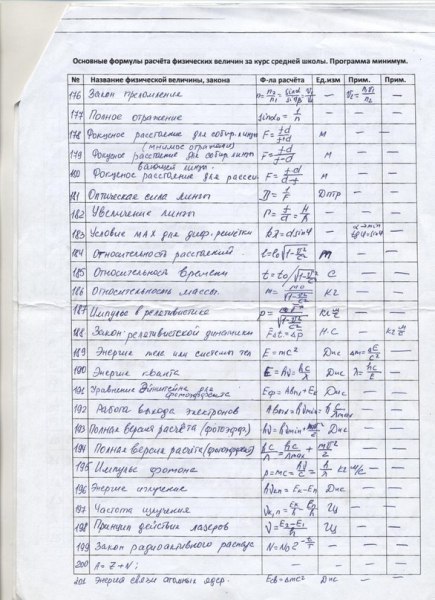 Основные формулы расчёта физических величин за курс средней школы. Программа минимум.
№ Название физической величины, закона Ф-ла расчёта Ед.изм Прим. Прим.
176 Закон преломления n=n₂/n₁=sinα/sinβ=V₁/V₂ — —
177 Полное отражение sinα₀=1/n — — —
178 Фокусное расстояние для собир. линзы F=fd/f+d м — —
(мнимое отражение)
179 Фокусное расстояние для собир. линзы F=fd/f-d м — —
180 Фокусное расстояние для рассеи вающей линзы F=fd/d-f м — —
181 Оптическая сила линзы D=1/F Дптр — —
182 Увеличение линзы Г=f/d=H/h — — —
183 Условие MAX для диф. решётки kλ=dsinφ — —
184 Относительность расстояний l=l₀√1-V²/c² м — —
185 Относительность времени t=t₀/√1-V²/c² с — —
186 Относительность массы m=m₀/√1-V²/c² кг — —
187 Импульс в релятивистике p=m₀V/√1-V²/c² кг м/с — —
188 Закон релятивистской динамики FΔt=Δp Н·с — кг м/с
189 Энергия тела или системы тел E=mc² Дж Δm=ΔE/c² —
190 Энергия кванта E=hν=hc/λ Дж λ=hc/E —
191 Уравнение Эйнштейна для фотоэффекта Eф=Aвых+Eк Дж — —
192 Работа выхода электронов Aвых=hνmin=hc/λmax
193 Полная версия расчёта (фотоэфф.) hν=hνmin+mV²/2 Дж — —
194 Полная версия расчёта (фотоэффект) hc/λ=hc/λmax+mV²/2 — —
195 Импульс фотона p=mc=hν/c=h/λ кг м/с — —
196 Энергия излучения hνkn=Eк-En Дж — —
197 Частота излучения νk,n=Eк/h-En/h Гц — —
198 Принцип действия лазеров ν=E₂-E₁/h Гц — —
199 Закон радиоактивного распада — — —
200 A=Z+N; — — — —
201 Энергия связи атомных ядер. Eсв=Δmc² Дж — —